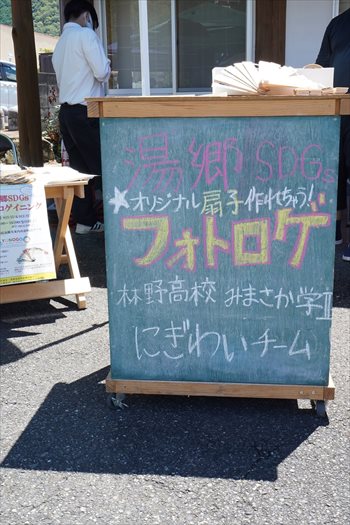 湯郷 SDGs
★オリジナル扇子作れちゃう!
フォトロゲ
林野高校 みまさか学Ⅱ
にぎわいチーム
湯郷SDGs